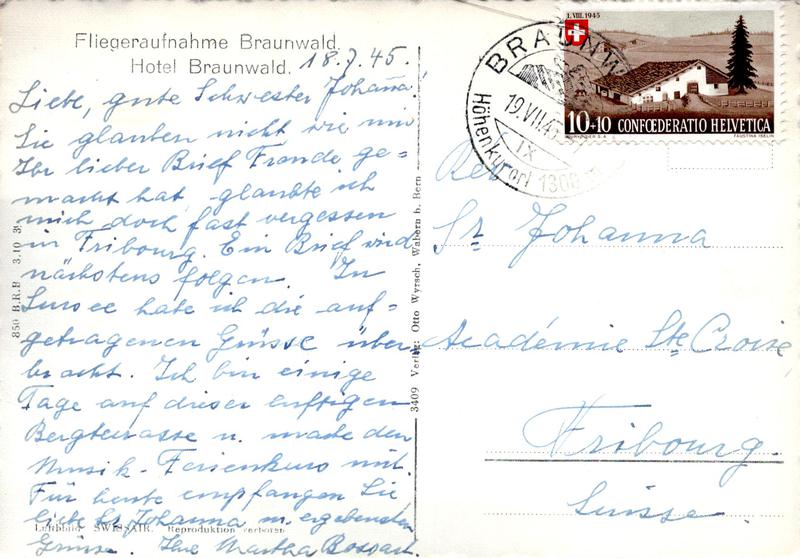 Fliegeraufnahme Braunwald
Hotel Braunwald. 18.7.45.
Liebe, gute Schwester Johanna!
Sie glauben nicht wie mir
Ihr lieber Brief Freude ge-
macht hat, glaubte ich
mich doch fast vergessen
in Fribourg. Ein Brief wird
nächstens folgen. In
Sursee habe ich die auf-
getragenen Grüsse über
bracht. Ich bin einige
Tage auf dieser luftigen
Bergterrasse u. mache den
Musik-Ferienkurs mit.
Für heute empfangen Sie
liebe Sr. Johanna m. ergebensten
Grüsse. Ihre Martha Bossart.
Luftbild SWISSAIR. Reproduktion verboten
850 B.R.B. 3.10.39
3409 Verlag: Otto Wyrsch, Wabern b. Bern
1. VIII. 1945
10+10 CONFŒDERATIO HELVETICA
FAUSTINA ISELIN
BRAUNW
19.VII.4
IX
Höhenkurort 1300 m
Rev.
Sr. Johanna
Académie Ste Croix
Fribourg.
Suisse.